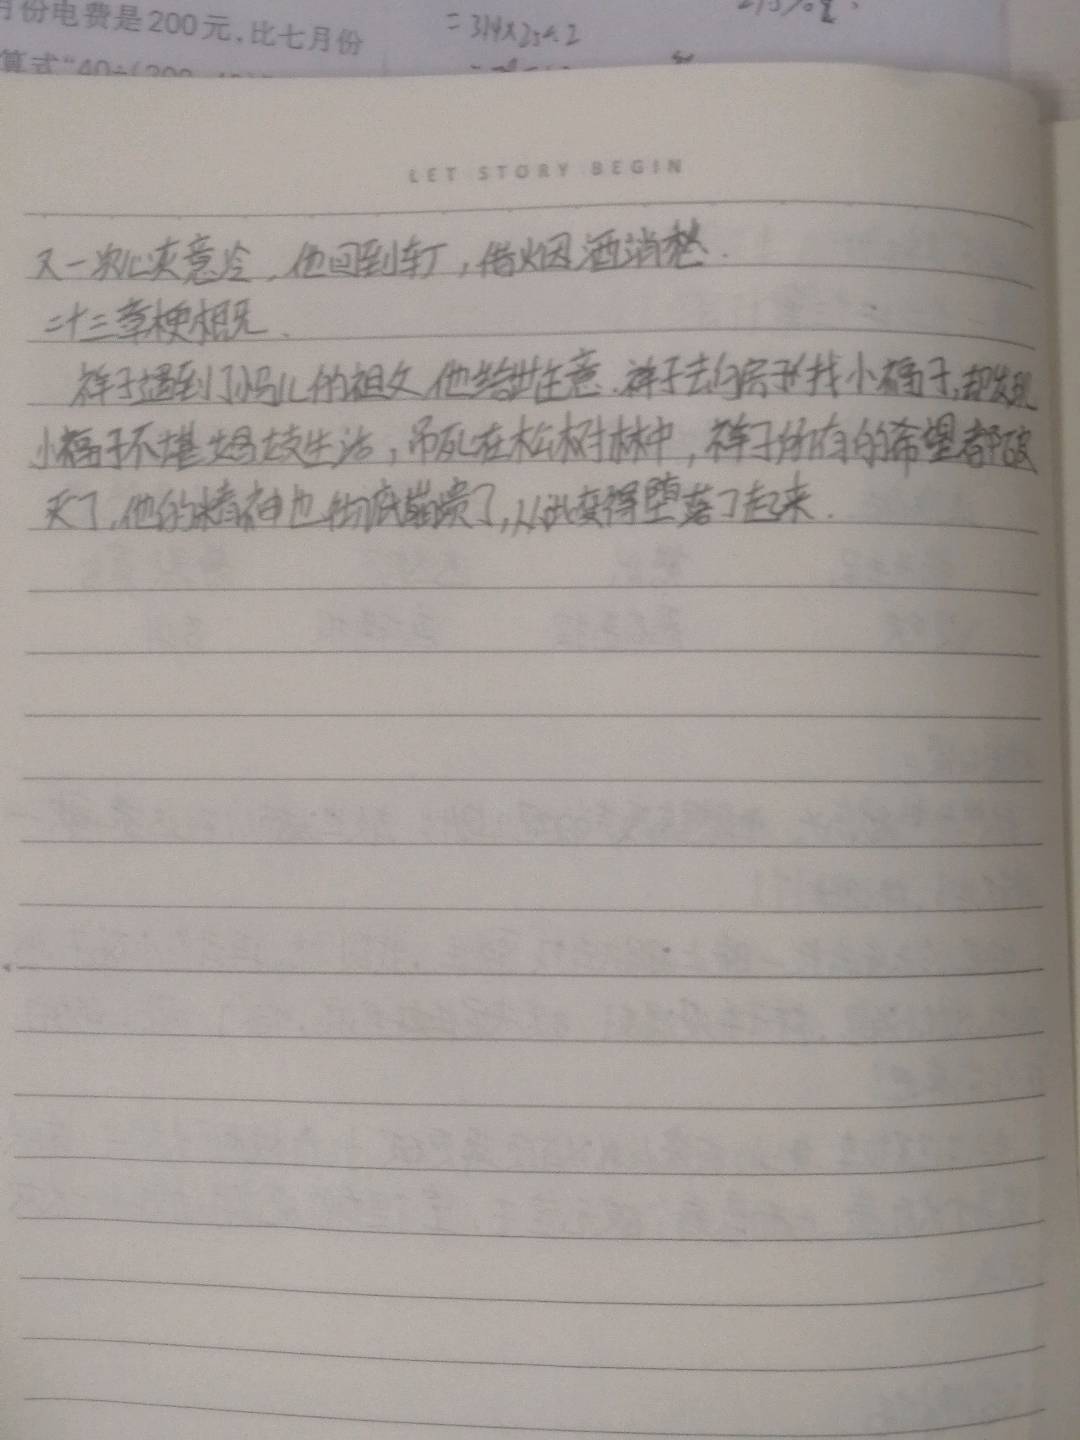 月份电费是200元,比七月份
算式"40÷(200
= 314×25×2
LET STORY BEGIN
又一次心灰意冷，他回到车厂，借烟酒消愁.
二十三章梗概.
祥子遇到了小马儿的祖父 他给出生意.祥子去白房子找小福子,却发现
小福子不堪 娼妓生活，吊死在松树林中，祥子所有的希望都破
灭了,他的精神也彻底崩溃了,从此变得堕落了起来.